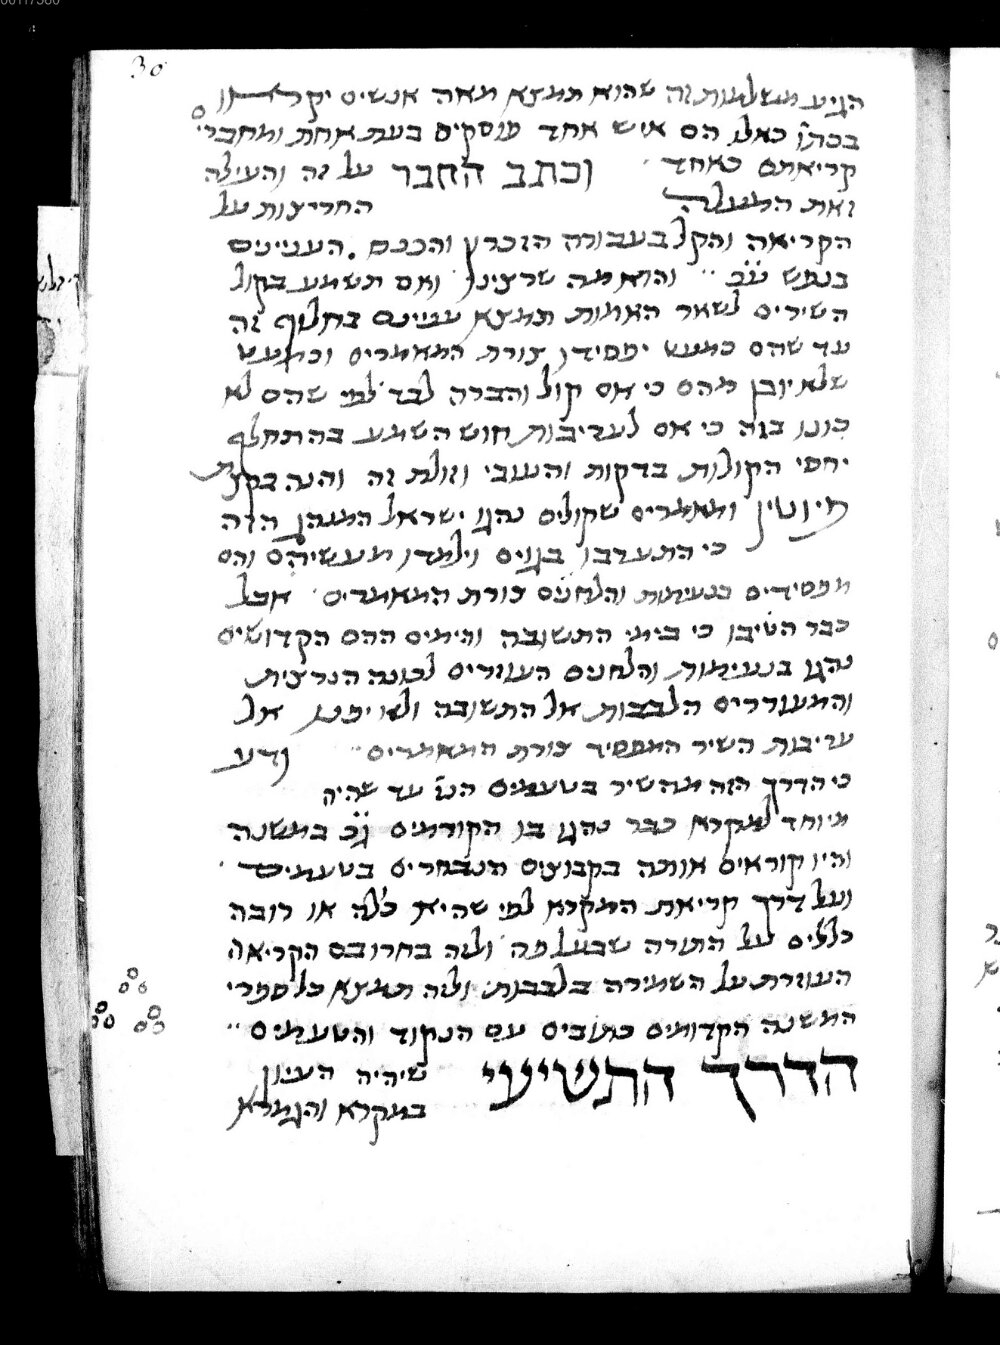 30
הגיע משלמות זה שהוא תמצא מאה אנשים יקראון
בכתו׳ כאלו הם איש אחד פוסקים בעת אחת ומחברי׳
קריאתם כאחד וכתב החבר על זה והעולה
זאת המעלה החריצות על
הקריאה והקל בעבורה הזכרון והכנס הענינים
בנפש ע״כ והוא מה שרצינו ואם תשמע בקול
השירים לשאר האמות תמצא ענינם בחלוף זה
עד שהם כמעט יפסידו צורת המאמרים וכמעט
שלא יובן מהם כי אם קול והברה לבד למי שהם לא
כונו בזה כי אם לעריבות חוש השמע בהתחלף
יחסי הקולות בדקות והעובי וזולת זה והנה בקצת
פיוטין ומאמרים שקולים נהגו ישראל המנהג הזה
כי התערבו בגוים וילמדו מעשיהם והם
מפסידים בנעימות והלחנים צורת המאמרים אבל
כבר הטיבו כי בימי התשובה והימים ההם הקדושים
נהגו בנעימות והלחנים העוזרים לכונה הנרצית
והמעוררים הלבבות אל התשובה ולא יפנו אל
עריבות השיר המפסיד צורת המאמרים ודע
כי הדרך הזה מהשיר בטעמים הנז׳ עד שהיה
מיוחד למקרא כבר נהגו בו הקודמים ג״כ במשנה
והיו קוראים אותה בקבוצים הנבחרים בטעמים
ועל דרך קריאת המקרא למי שהיא כלה או רובה
כללים על התורה שבעל פה ולזה בחרו בם הקריאה
העוזרת על השמירה בלבבות ולזה תמצא כל ספרי
המשנה הקדומים כתובים עם הנקוד והטעמים
הדרך התשיעי שיהיה העיון
במקרא והגמרא